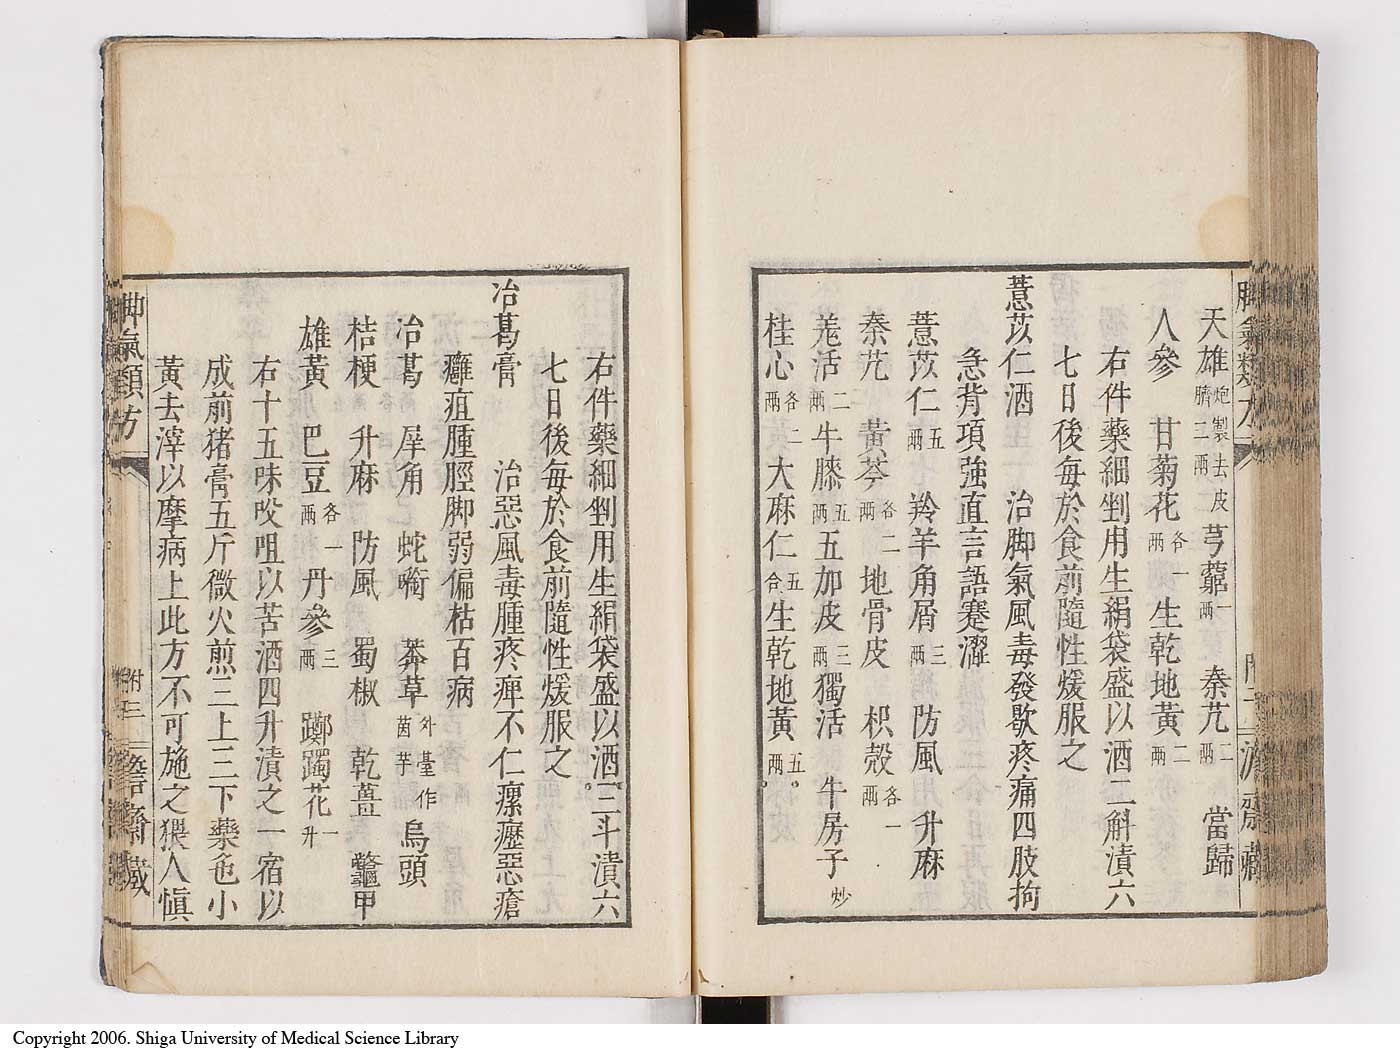 天雄炮製去皮臍二兩 芎藭一兩 秦艽二兩 當歸
人參 甘菊花各一兩 生乾地黃二兩
右件藥細剉用生絹袋盛以酒二斛漬六
七日後每於食前隨性煖服之
薏苡仁酒 治脚氣風毒發歇疼痛四肢拘
急背項強直言語蹇澀
薏苡仁五兩 羚羊角屑三兩 防風 升麻
秦艽 黃芩各二兩 地骨皮 枳殼各一兩
羗活二兩 牛膝五兩 五加皮三兩 獨活 牛房子炒
桂心各二兩 大麻仁五合 生乾地黃五兩
右件藥細剉用生絹袋盛以酒三斗漬六
七日後每於食前隨性煖服之
治葛膏 治惡風毒腫疼痺不仁瘰癧惡瘡
癰疽腫脛脚弱偏枯百病
冶葛 犀角 蛇銜 莽草外臺作茵芋 烏頭
桔梗 升麻 防風 蜀椒 乾薑 鼈甲
雄黃 巴豆各一兩 丹參三兩 躑躅花一升
右十五味㕮咀以苦酒四升漬之一宿以
成煎猪膏五斤微火煎三上三下藥色小
黃去滓以摩病上此方不可施之猥人慎
脚氣類方
附三